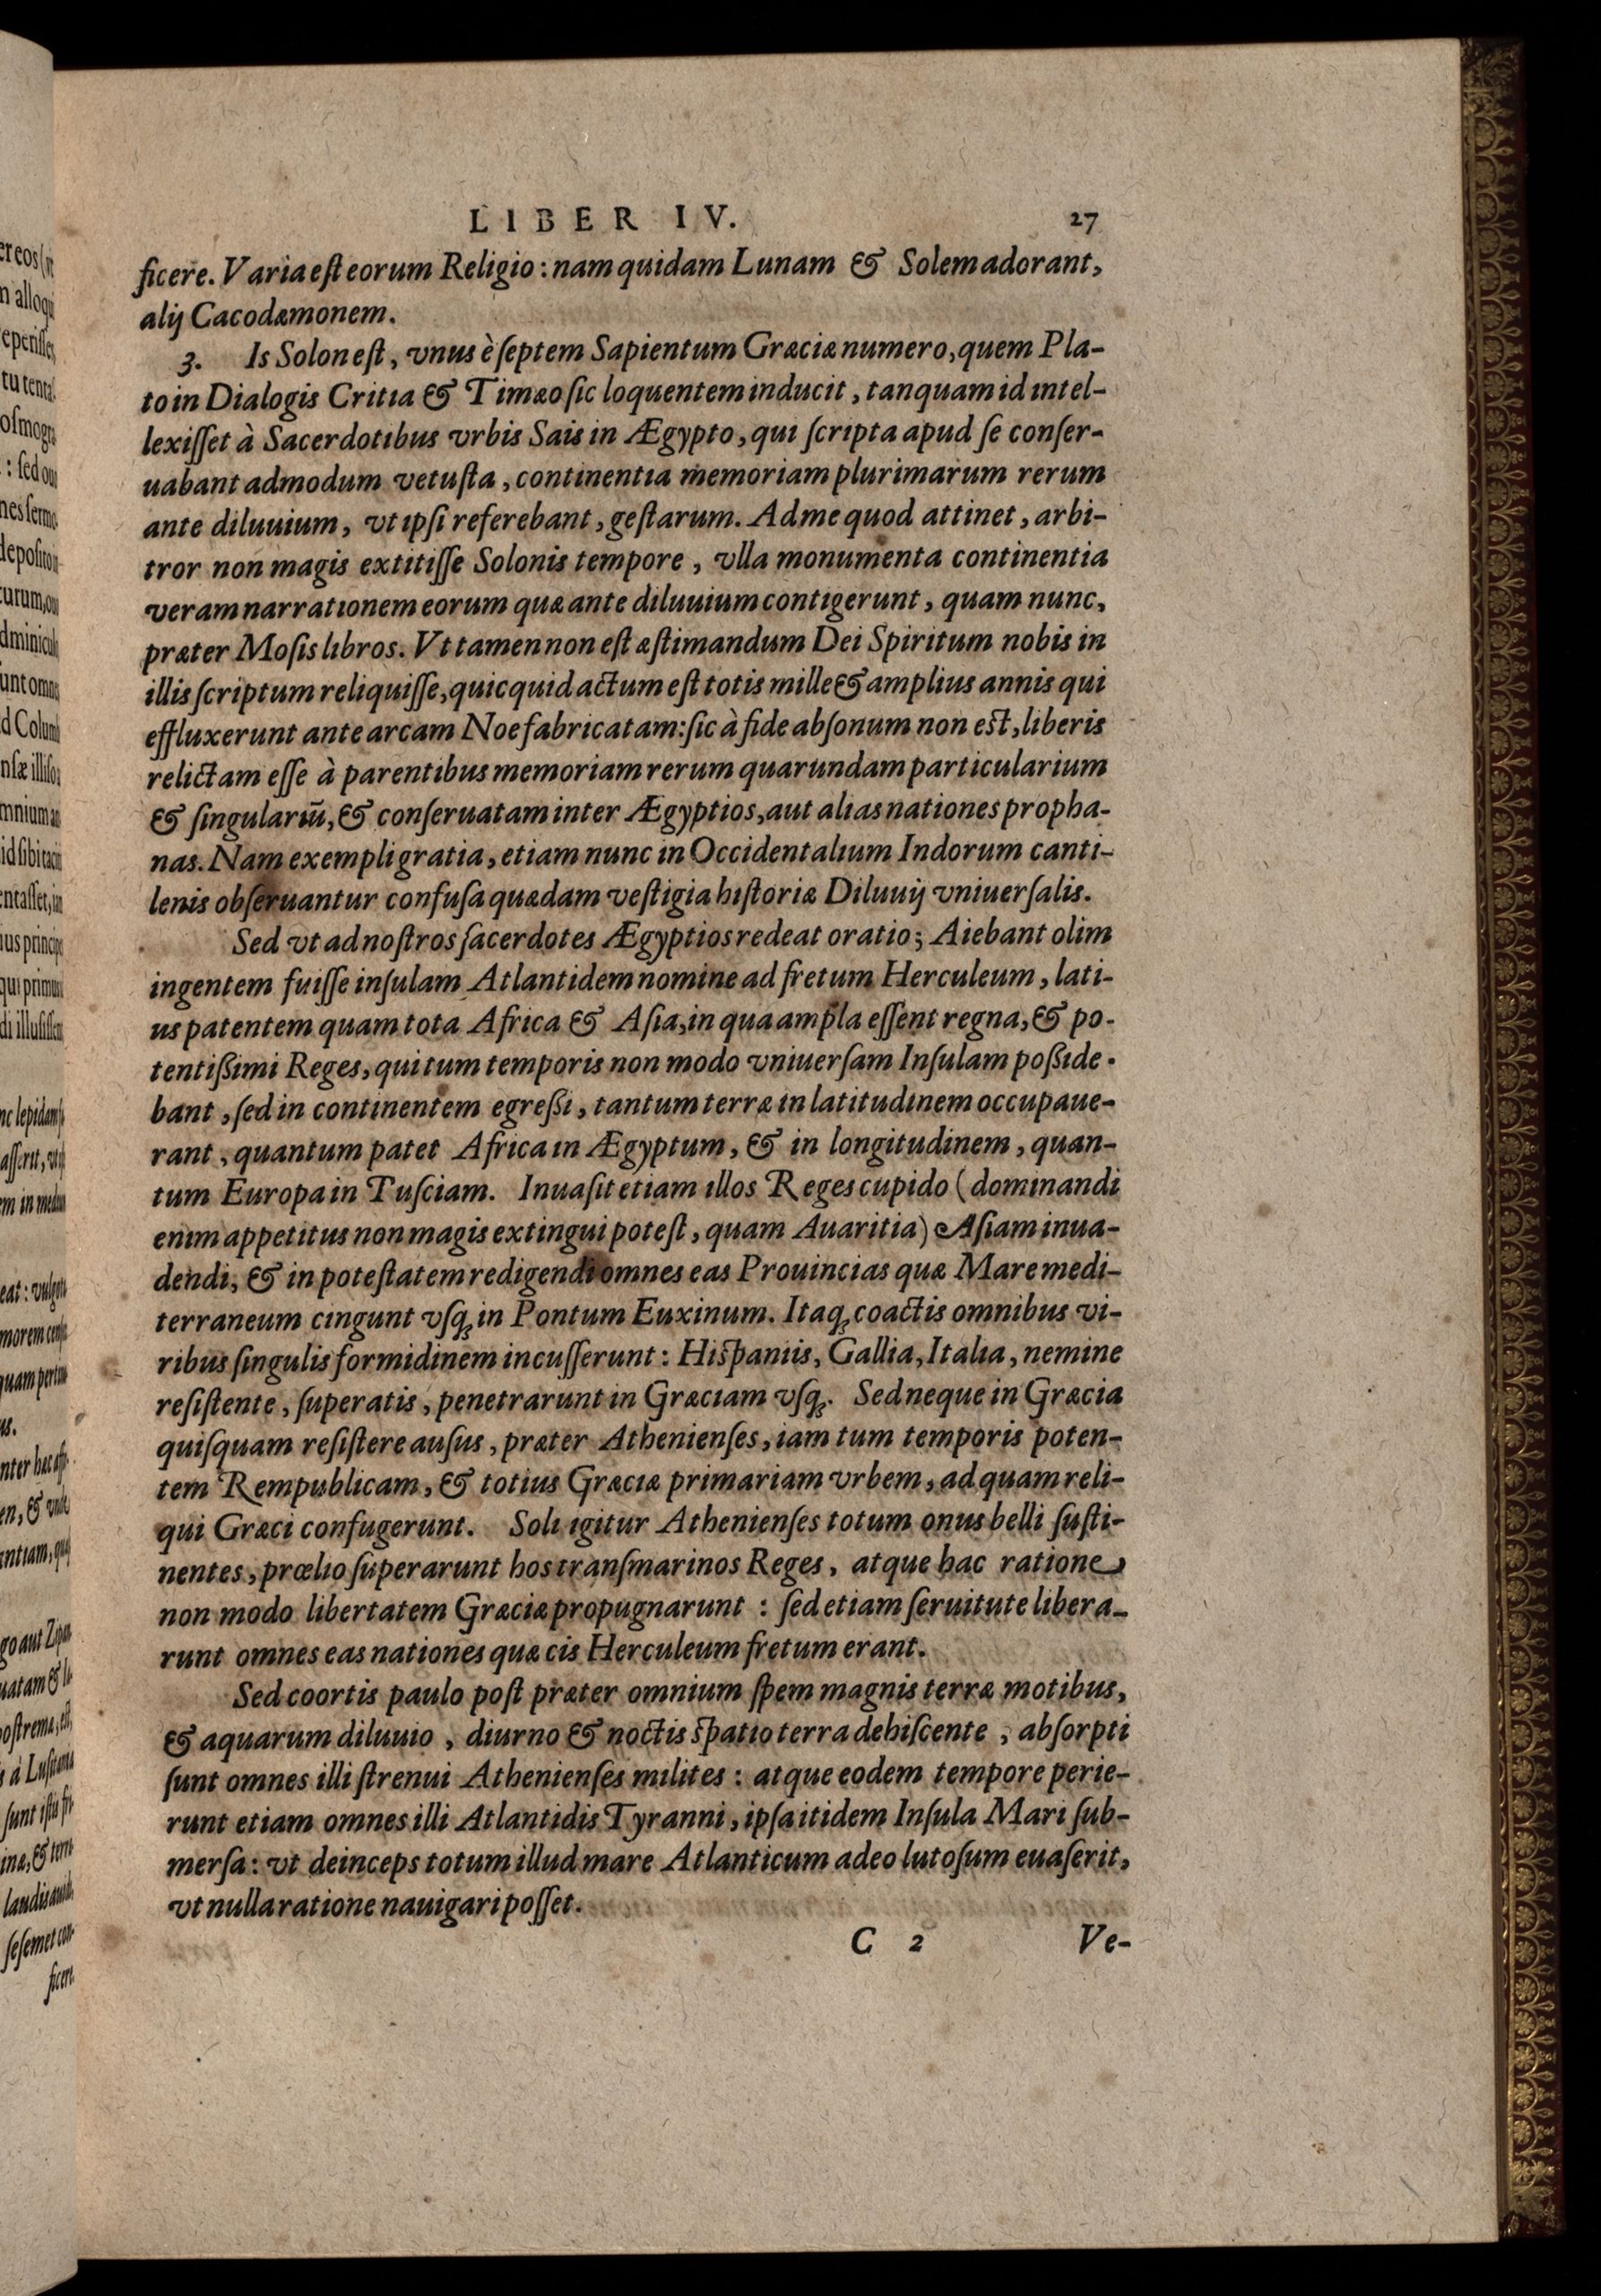 LIBER IV. 27
ficere. Varia eſt eorum Religio: nam quidam Lunam & Solem adorant,
alij Cacodæmonem.
3. Is Solon eſt, vnus è ſeptem Sapientum Græciæ numero, quem Pla-
to in Dialogis Critia & Timæo ſic loquentem inducit, tanquam id intel-
lexiſſet à Sacerdotibus vrbis Sais in Ægypto, qui ſcripta apud ſe conſer-
uabant admodum vetuſta, continentia memoriam plurimarum rerum
ante diluuium, vt ipſi referebant, geſtarum. Ad me quod attinet, arbi-
tror non magis extitiſſe Solonis tempore, vlla monumenta continentia
veram narrationem eorum quæ ante diluuium contigerunt, quam nunc,
præter Moſis libros. Vt tamen non eſt æſtimandum Dei Spiritum nobis in
illis ſcriptum reliquiſſe, quicquid actum eſt totis mille & amplius annis qui
effluxerunt ante arcam Noe fabricatam: ſic à fide abſonum non eſt, liberis
relictam eſſe à parentibus memoriam rerum quarundam particularium
& ſingulariũ, & conſeruatam inter Ægyptios, aut alias nationes propha-
nas. Nam exempli gratia, etiam nunc in Occidentalium Indorum canti-
lenis obſeruantur confuſa quædam veſtigia hiſtoriæ Diluuij vniuerſalis.
Sed vt ad noſtros ſacerdotes Ægyptios redeat oratio; Aiebant olim
ingentem fuiſſe inſulam Atlantidem nomine ad fretum Herculeum, lati-
us patentem quam tota Africa & Aſia, in qua ampla eſſent regna, & po-
tentißimi Reges, qui tum temporis non modo vniuerſam Inſulam poßide-
bant, ſed in continentem egreßi, tantum terræ in latitudinem occupaue-
rant, quantum patet Africa in Ægyptum, & in longitudinem, quan-
tum Europa in Tuſciam. Inuaſit etiam illos Reges cupido (dominandi
enim appetitus non magis extingui poteſt, quam Auaritia) Aſiam inua-
dendi, & in poteſtatem redigendi omnes eas Prouincias quæ Mare medi-
terraneum cingunt vſq; in Pontum Euxinum. Itaq; coactis omnibus vi-
ribus ſingulis formidinem incuſſerunt: Hiſpaniis, Gallia, Italia, nemine
reſiſtente, ſuperatis, penetrarunt in Græciam vſq;. Sed neque in Græcia
quiſquam reſiſtere auſus, præter Athenienſes, iam tum temporis poten-
tem Rempublicam, & totius Græciæ primariam vrbem, ad quam reli-
qui Græci confugerunt. Soli igitur Athenienſes totum onus belli ſuſti-
nentes, prœlio ſuperarunt hos tranſmarinos Reges, atque hac ratione
non modo libertatem Græciæ propugnarunt: ſed etiam ſeruitute libera-
runt omnes eas nationes quæ cis Herculeum fretum erant.
Sed coortis paulo poſt præter omnium ſpem magnis terræ motibus,
& aquarum diluuio, diurno & noctis ſpatio terra dehiſcente, abſorpti
ſunt omnes illi ſtrenui Athenienſes milites: atque eodem tempore perie-
runt etiam omnes illi Atlantidis Tyranni, ipſa itidem Inſula Mari ſub-
merſa: vt deinceps totum illud mare Atlanticum adeo lutoſum euaſerit,
vt nulla ratione nauigari poſſet.
C 2 Ve-